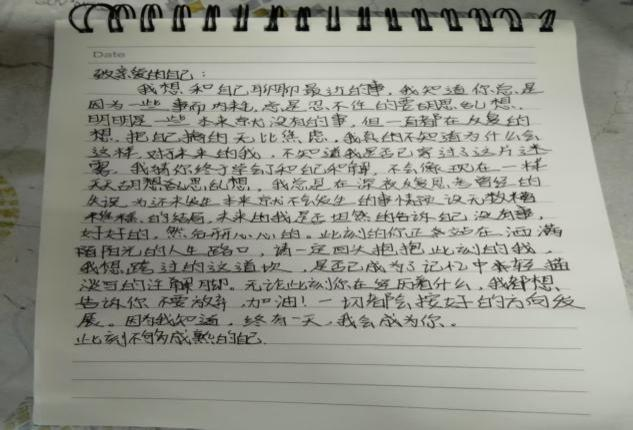 Date
致亲爱的自己：
我想和自己聊聊最近的事，我知道你总是
因为一些事而内耗，总是忍不住的要胡思乱想，
明明是一些本来就没有的事，但一直都在反复的
想，把自己搞的无比焦虑，我真的不知道为什么会
这样，对于未来的我，不知道我是否已穿过了这片迷
雾，我猜你终于学会了和自己和解，不会像现在一样
天天胡思乱想，我总是在深夜反复思考曾经的
失误，为还未发生本来就不会发生的事情预设无数种
糟糕的结局，未来的我是否坦然的告诉自己，没有事，
好好的，然后开心心的。此刻的你正站在洒满
阳光的人生路口，请一定回头抱抱此刻的我，
我想跨过的这道坎，是否已成为了记忆中来轻描
淡写的注解脚。无论此刻你在经历着什么，我都想
告诉你不要放弃，加油！一切都会按好的方向发
展。因为我知道，终有一天，我会成为你。
此刻不够成熟的自己